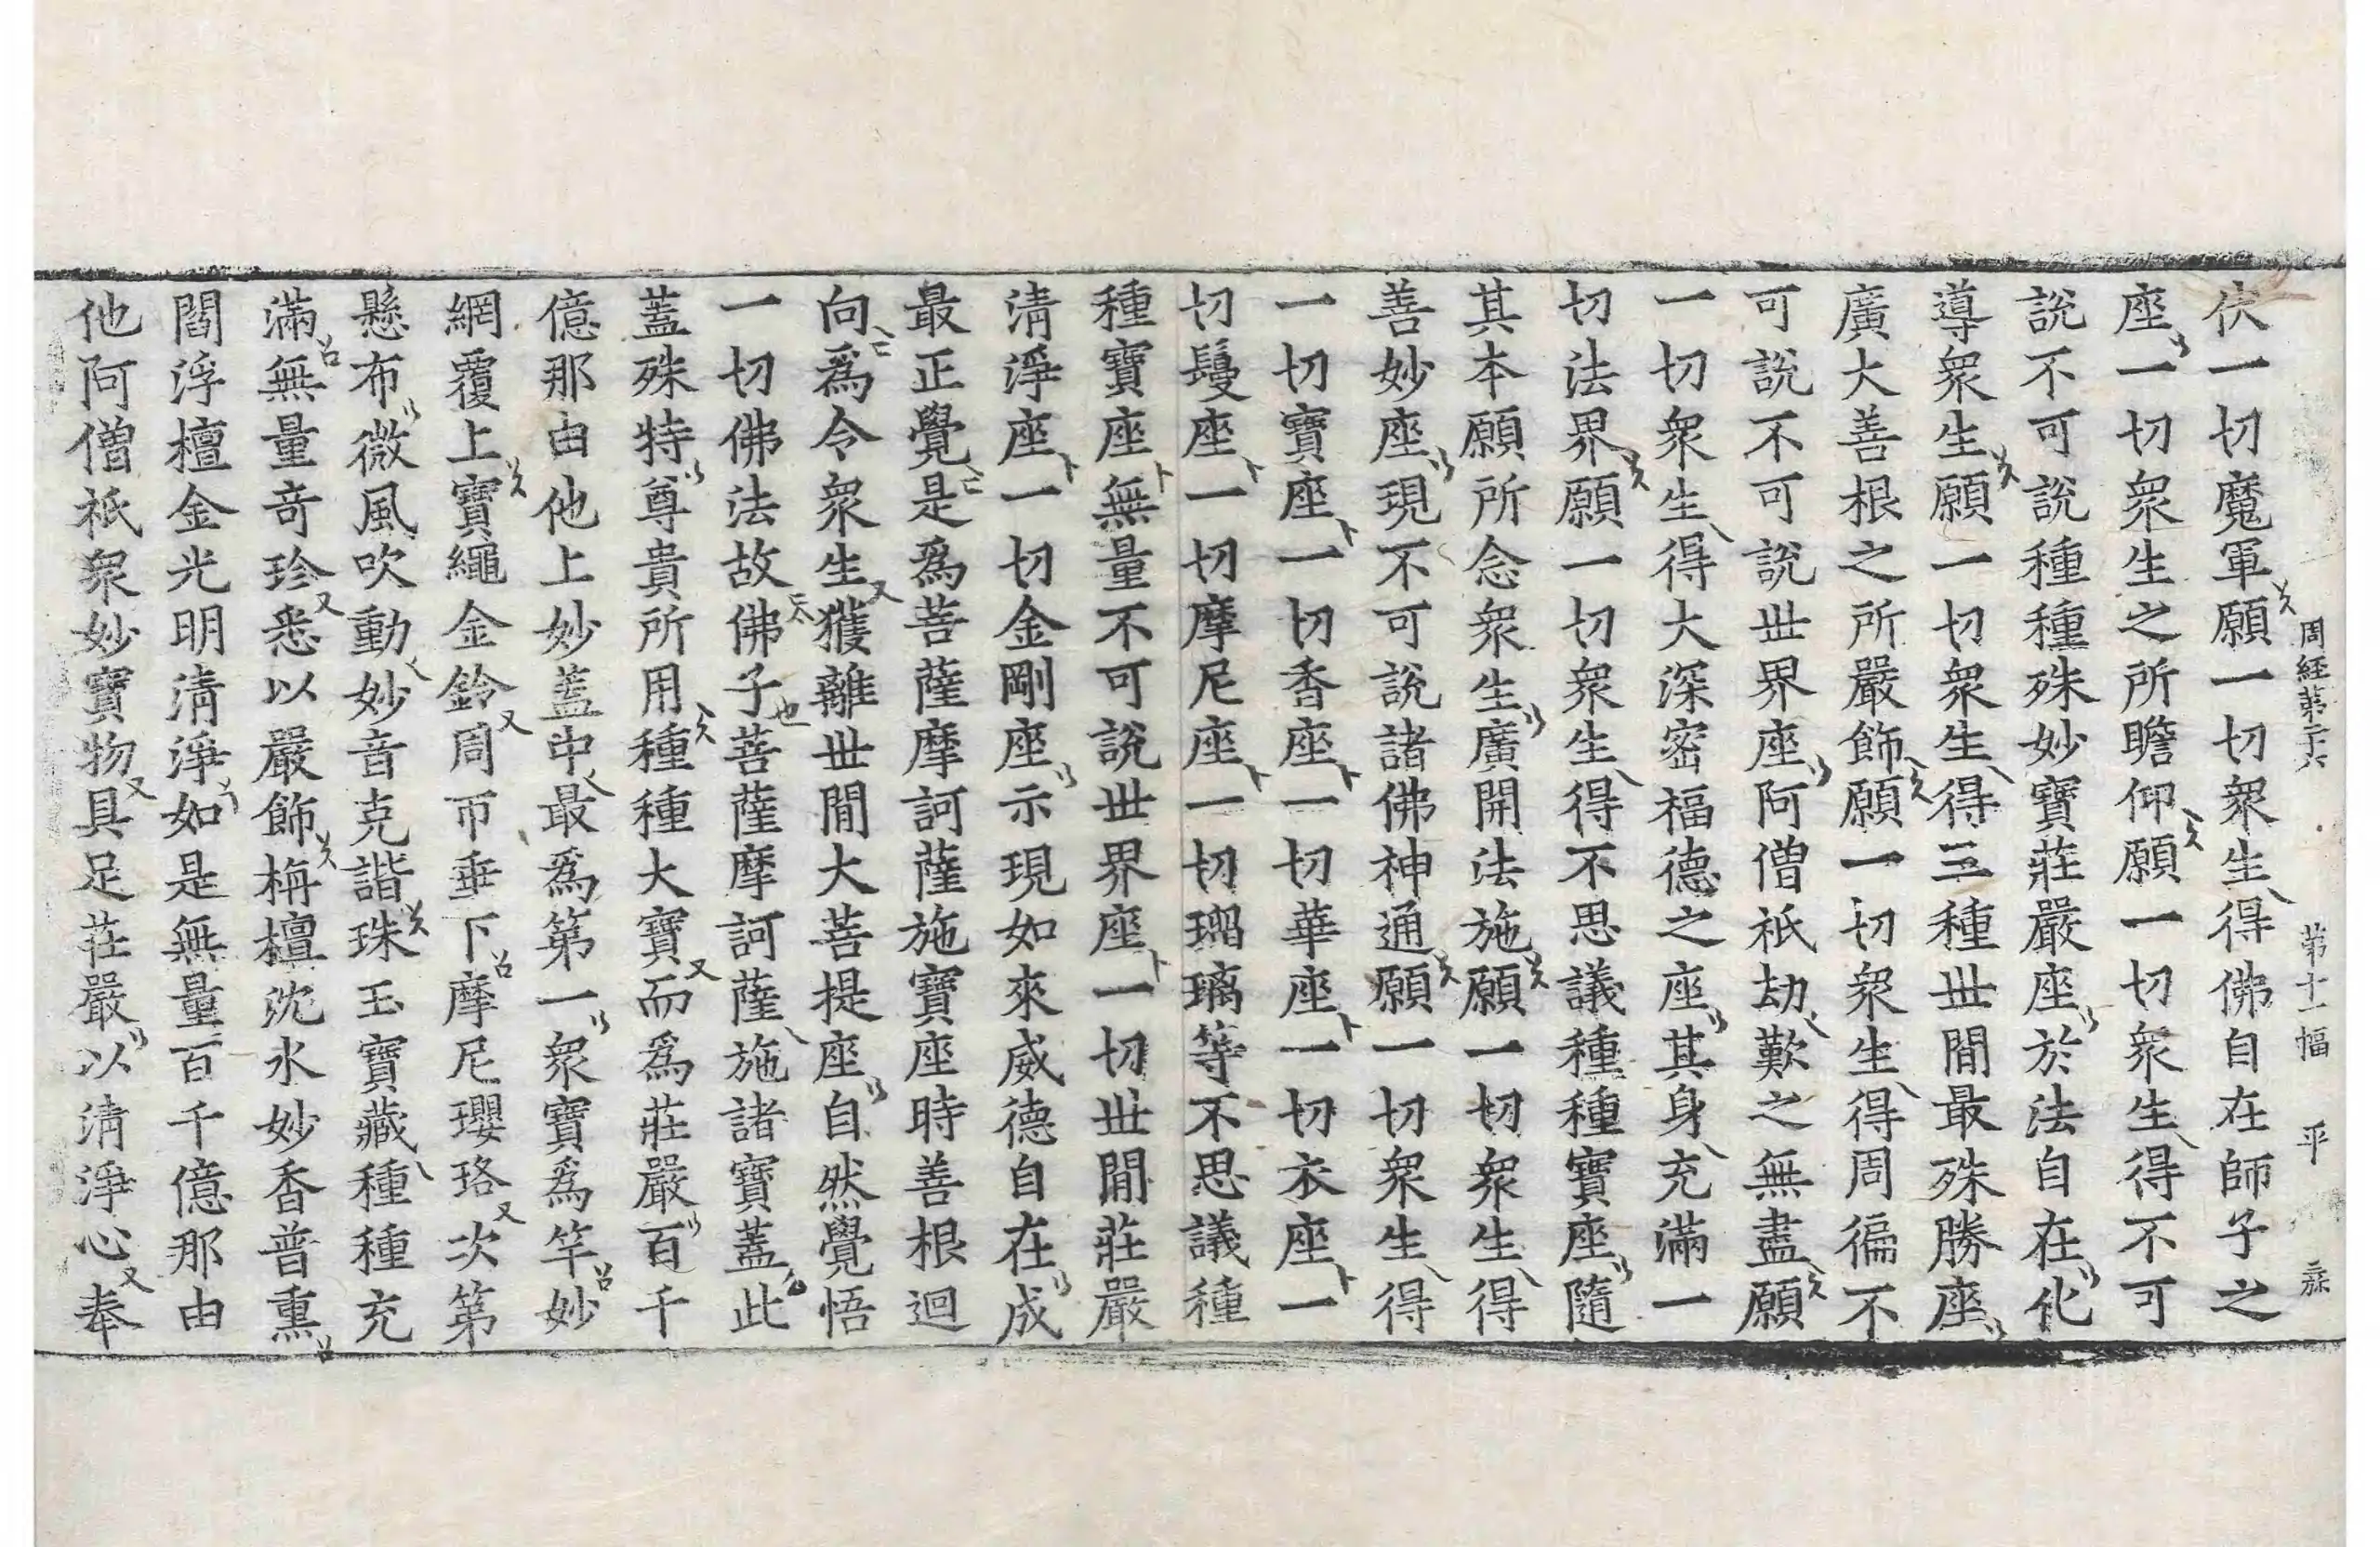 周經第二十六　第十一幅　平
伏一切魔軍願一切衆生得佛自在師子之
座一切衆生之所瞻仰願一切衆生得不可
說不可說種種殊妙寶莊嚴座於法自在化
導衆生願一切衆生得三種世間最殊勝座
廣大善根之所嚴飾願一切衆生得周徧不
可說不可說世界座阿僧祇劫歎之無盡願
一切衆生得大深密福德之座其身充滿一
切法界願一切衆生得不思議種種寶座隨
其本願所念衆生廣開法施願一切衆生得
善妙座現不可說諸佛神通願一切衆生得
一切寶座一切香座一切華座一切衣座一
切鬘座一切摩尼座一切瑠璃等不思議種
種寶座無量不可說世界座一切世間莊嚴
淸淨座一切金剛座示現如來威德自在成
最正覺是爲菩薩摩訶薩施寶座時善根迴
向爲令衆生獲離世間大菩提座自然覺悟
一切佛法故佛子菩薩摩訶薩施諸寶蓋此
蓋殊特尊貴所用種種大寶而爲莊嚴百千
億那由他上妙蓋中最爲第一衆寶爲竿妙
網覆上寶繩金鈴周帀垂下摩尼瓔珞次第
懸布微風吹動妙音克諧珠玉寶藏種種充
滿無量奇珍悉以嚴飾栴檀沈水妙香普熏
閻浮檀金光明淸淨如是無量百千億那由
他阿僧祇衆妙寶物具足莊嚴以淸淨心奉